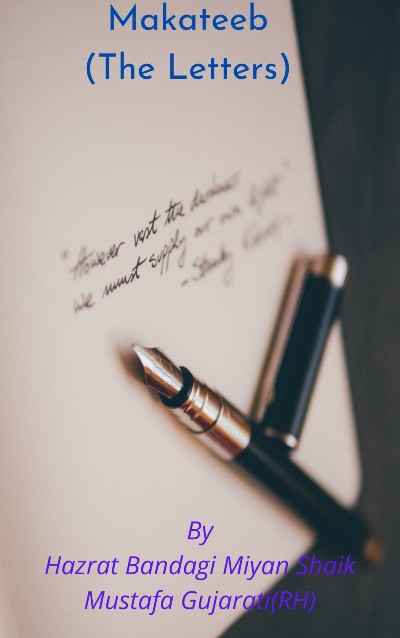 Makateeb
(The Letters)
"However vast the darkness
we must supply our own light"
- Stanley Kubrick
By
Hazrat Bandagi Miyan Shaik
Mustafa Gujarati(RH)